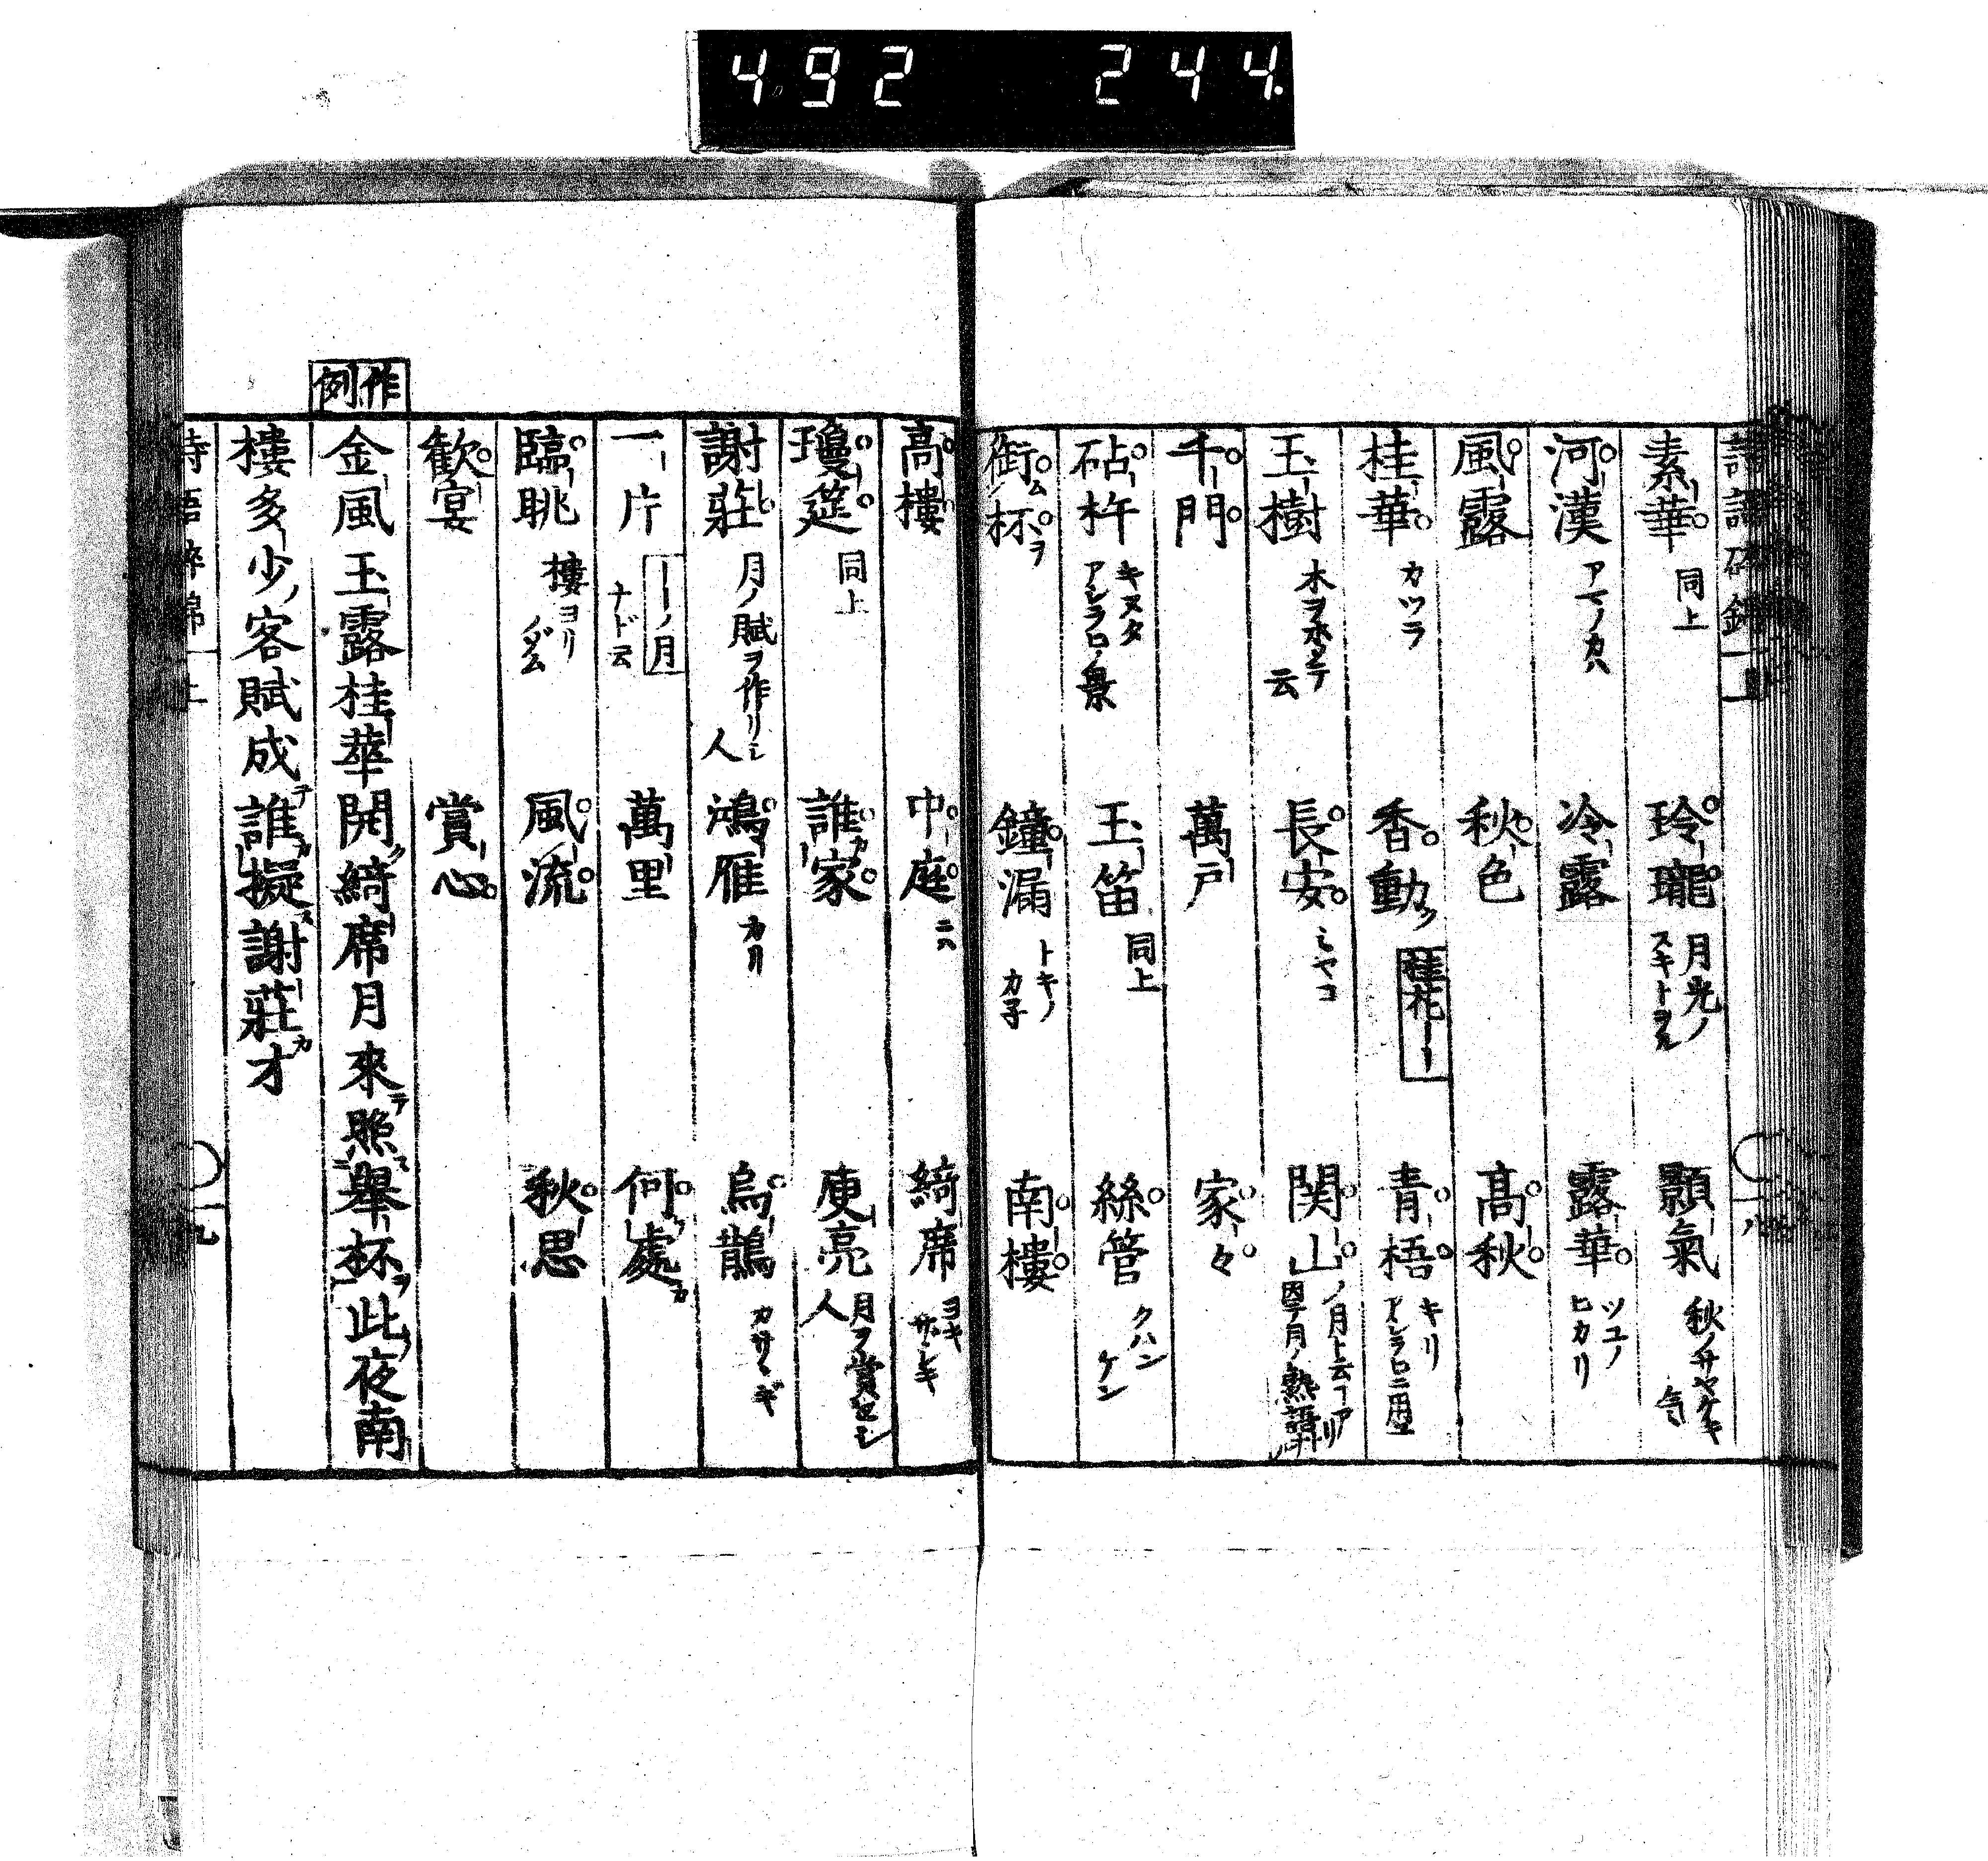 492 244.
詩語碎錦 上
素華 同上 玲瓏 月光ノスキトヲル 顥氣 秋ノサヤケキ气
河漢 アマノカハ 冷露 露華 ツユノヒカリ
風露 秋色 高秋
桂華 カツラ 香動ク 桂花｜｜ 青梧 キリ アシラヒニ用
玉樹 木ヲホメテ云 長安 ミヤコ 関山 ノ月ト云フアリ 因テ月ノ熟語
千門 萬戸 家々
砧杵 キヌタ アシラヒノ景 玉笛 同上 絲管 クハンケン
銜ム杯ヲ 鐘漏 トキノカ子 南樓
高樓 中庭 ニハ 綺席 ヨキザシキ
瓊筵 同上 誰カ家 庾亮 月ヲ賞セシ人
謝莊 月ノ賦ヲ作リシ人 鴻雁 カリ 烏鵲 カサヽギ
一片 ｜｜ノ月ナド云 萬里 何處カ
臨眺 樓ヨリノゾム 風流 秋思
歡宴 賞心
作例
金風玉露桂華開ク綺席月來テ照ス舉杯ヲ此ノ夜南
樓多少ノ客賦成テ誰カ擬ス謝莊カ才
詩語碎錦 上 九